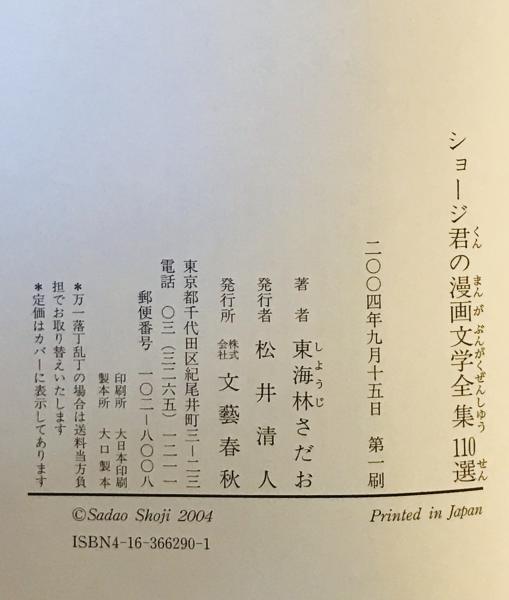 ショージ君の漫画文学全集110選
くん まんがぶんがくぜんしゅう せん
二〇〇四年九月十五日 第一刷
著者 東海林さだお
しょうじ
発行者 松井清人
発行所 株式会社 文藝春秋
東京都千代田区紀尾井町三―二三
電話 〇三(三二六五)一二一一
郵便番号 一〇二―八〇〇八
印刷所 大日本印刷
製本所 大口製本
*万一落丁乱丁の場合は送料当方負
担でお取り替えいたします
*定価はカバーに表示してあります
©Sadao Shoji 2004
Printed in Japan
ISBN4-16-366290-1